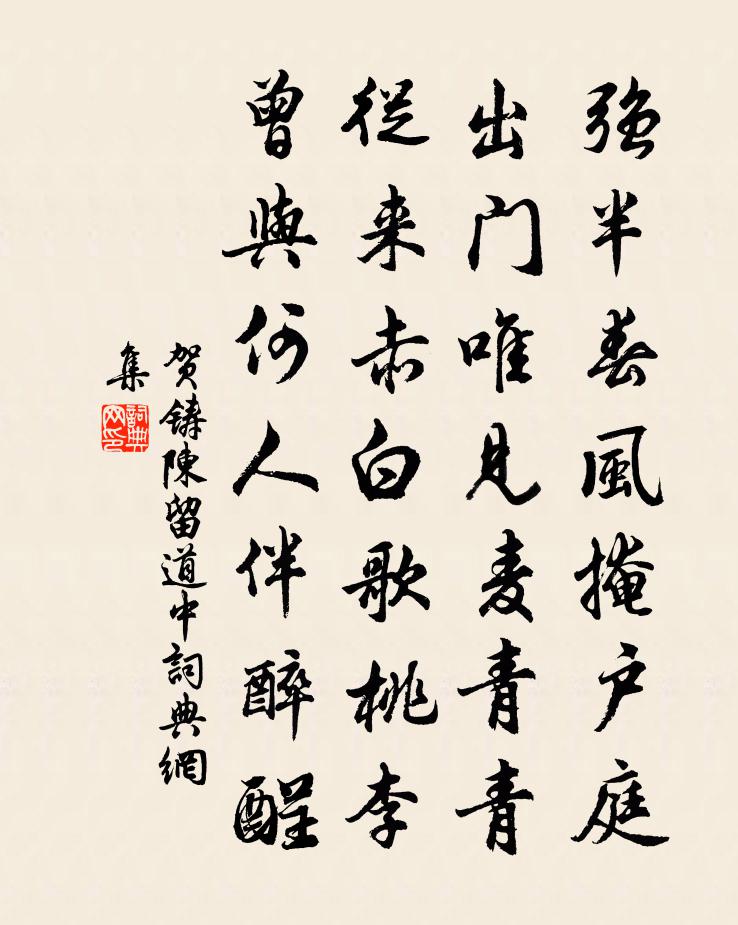 强半春風掩户庭
出門唯見麦青青
從来赤白歌桃李
曾與何人伴醉醒
贺鑄陳留道中詞典網
集
詞典网印